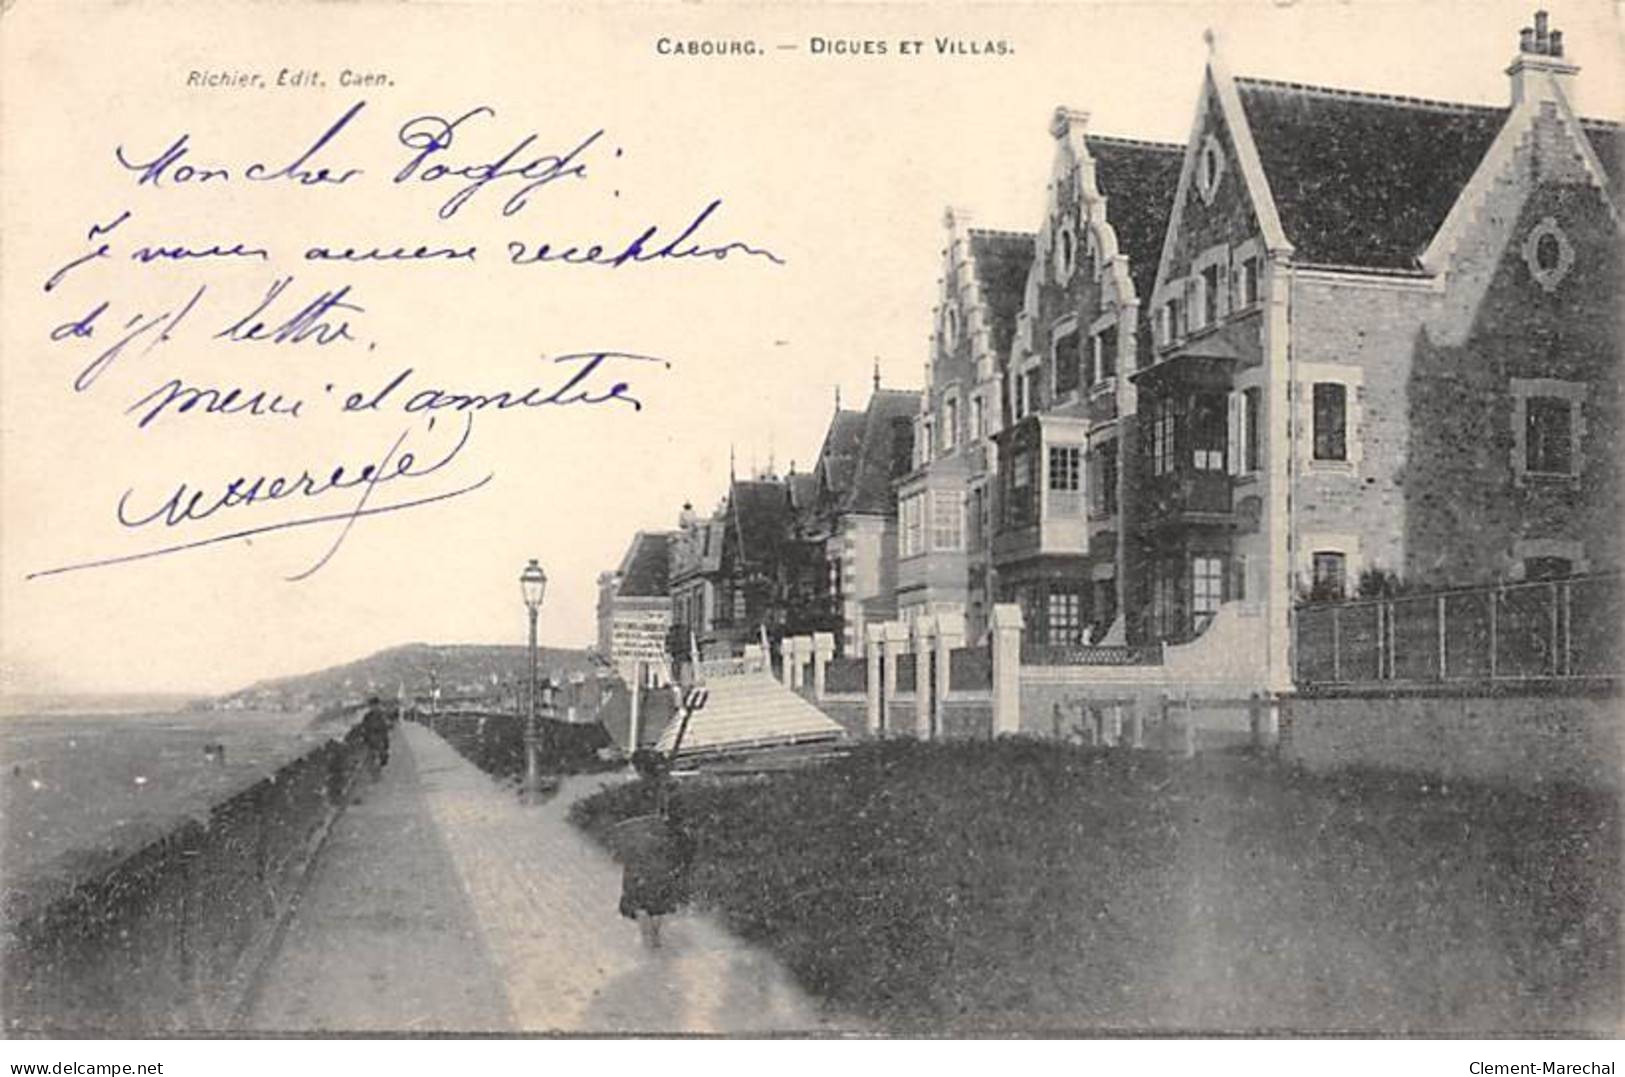 CABOURG. — DIGUES ET VILLAS.
Richier, Édit. Caen.
Mon cher Poggi.
Je vous accuse reception
de lettre,
merci et amitiés
www.delcampe.net
Clement-Marechal